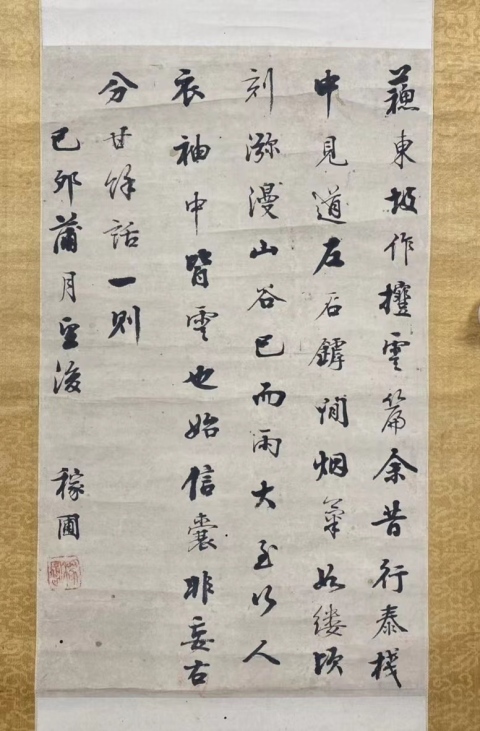 蘓東坡作攓雲篇余昔行秦棧
中見道左石罅間烟氣如縷頃
刻瀰漫山谷已而雨大至行人
衣袖中皆雲也始信囊非妄右
分甘餘話一則
己卯蒲月望後 稼圃